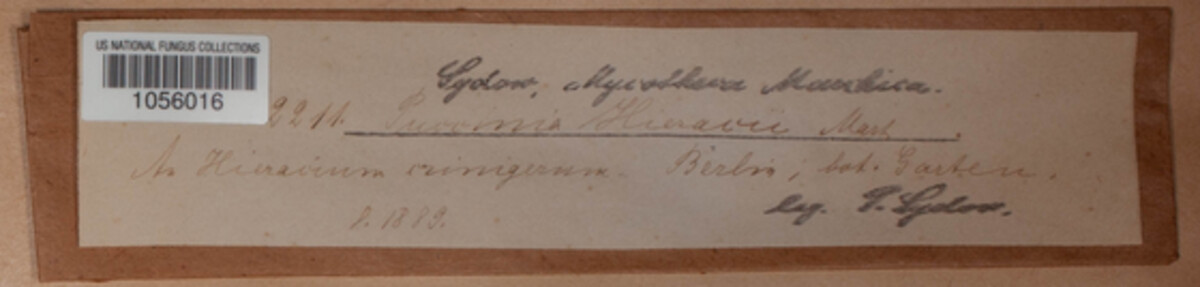 US NATIONAL FUNGUS COLLECTIONS
1056016
Sydow, Mycotheca Marchica.
2211. Puccinia Hieracii Mart.
An Hieracium crinigerum. Berlin, bot. Garten.
8. 1889.
leg. P. Sydow.